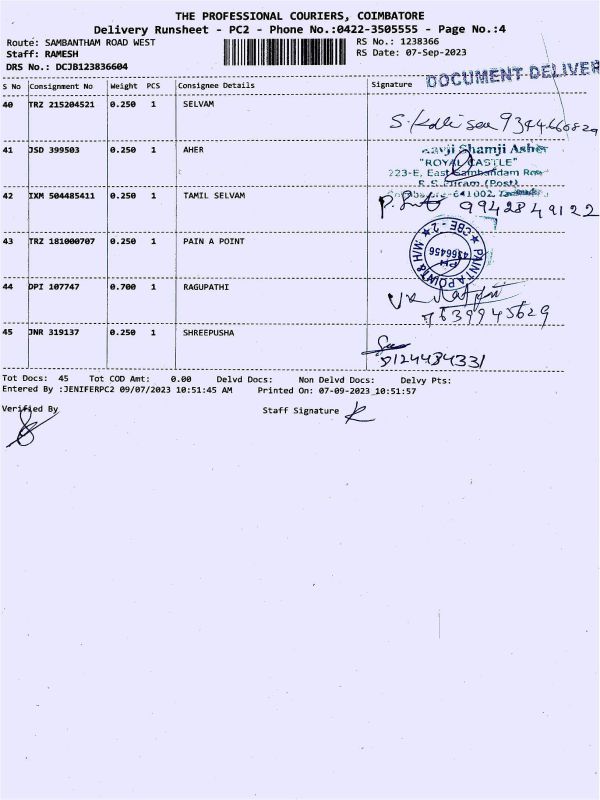 THE PROFESSIONAL COURIERS, COIMBATORE
Delivery Runsheet - PC2 - Phone No.:0422-3505555 - Page No.:4
Route: SAMBANTHAM ROAD WEST RS No.: 1238366
Staff: RAMESH RS Date: 07-Sep-2023
DRS No.: DCJB123836604
DOCUMENT DELIVER
S No Consignment No Weight PCS Consignee Details Signature
40 TRZ 215204521 0.250 1 SELVAM
41 JSD 399503 0.250 1 AHER
Shamji Asher
"ROYAL CASTLE"
223-E, East Sambandam Roa
R.S.Puram (Post)
641002
42 IXM 504485411 0.250 1 TAMIL SELVAM
9942849122
43 TRZ 181000707 0.250 1 PAIN A POINT
CBE - 2
4366456
PH
44 DPI 107747 0.700 1 RAGUPATHI
7639945629
45 JNR 319137 0.250 1 SHREEPUSHA
8124484331
Tot Docs: 45 Tot COD Amt: 0.00 Delvd Docs: Non Delvd Docs: Delvy Pts:
Entered By :JENIFERPC2 09/07/2023 10:51:45 AM Printed On: 07-09-2023 10:51:57
Verified By Staff Signature